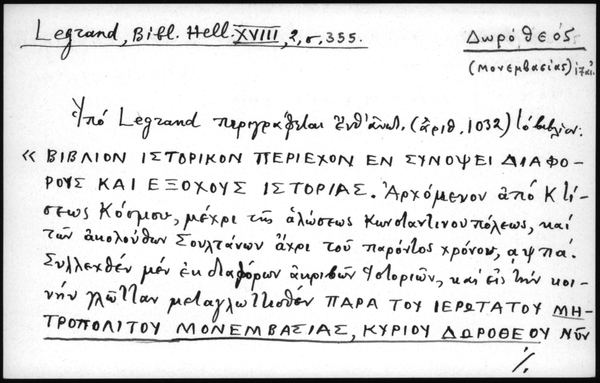 Legrand, Bibl. Hell. XVIII, 2, σ. 355.
Δωρόθεος
(Μονεμβασίας)
Ὑπό Legrand περιγράφεται ἐνθ' ἀνωτ. (ἀριθ. 1032) τό βιβλίον:
« ΒΙΒΛΙΟΝ ΙΣΤΟΡΙΚΟΝ ΠΕΡΙΕΧΟΝ ΕΝ ΣΥΝΟΨΕΙ ΔΙΑΦΟ-
ΡΟΥΣ ΚΑΙ ΕΞΟΧΟΥΣ ΙΣΤΟΡΙΑΣ. Ἀρχόμενον ἀπό Κτί-
σεως Κόσμου, μέχρι τῆς ἁλώσεως Κωνσταντινουπόλεως, καί
τῶν ἀκολούθων Σουλτάνων ἄχρι τοῦ παρόντος χρόνου, αψπα΄.
Συλλεχθέν μέν ἐκ διαφόρων ἀκριβῶν Ἱστοριῶν, καί εἰς τήν κοι-
νήν γλῶτταν μεταγλωττισθέν ΠΑΡΑ ΤΟΥ ΙΕΡΩΤΑΤΟΥ ΜΗ-
ΤΡΟΠΟΛΙΤΟΥ ΜΟΝΕΜΒΑΣΙΑΣ, ΚΥΡΙΟΥ ΔΩΡΟΘΕΟΥ Νῦν
./.